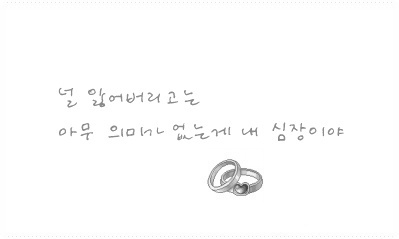 널 잃어버리고는
아무 의미가 없는게 내 심장이야